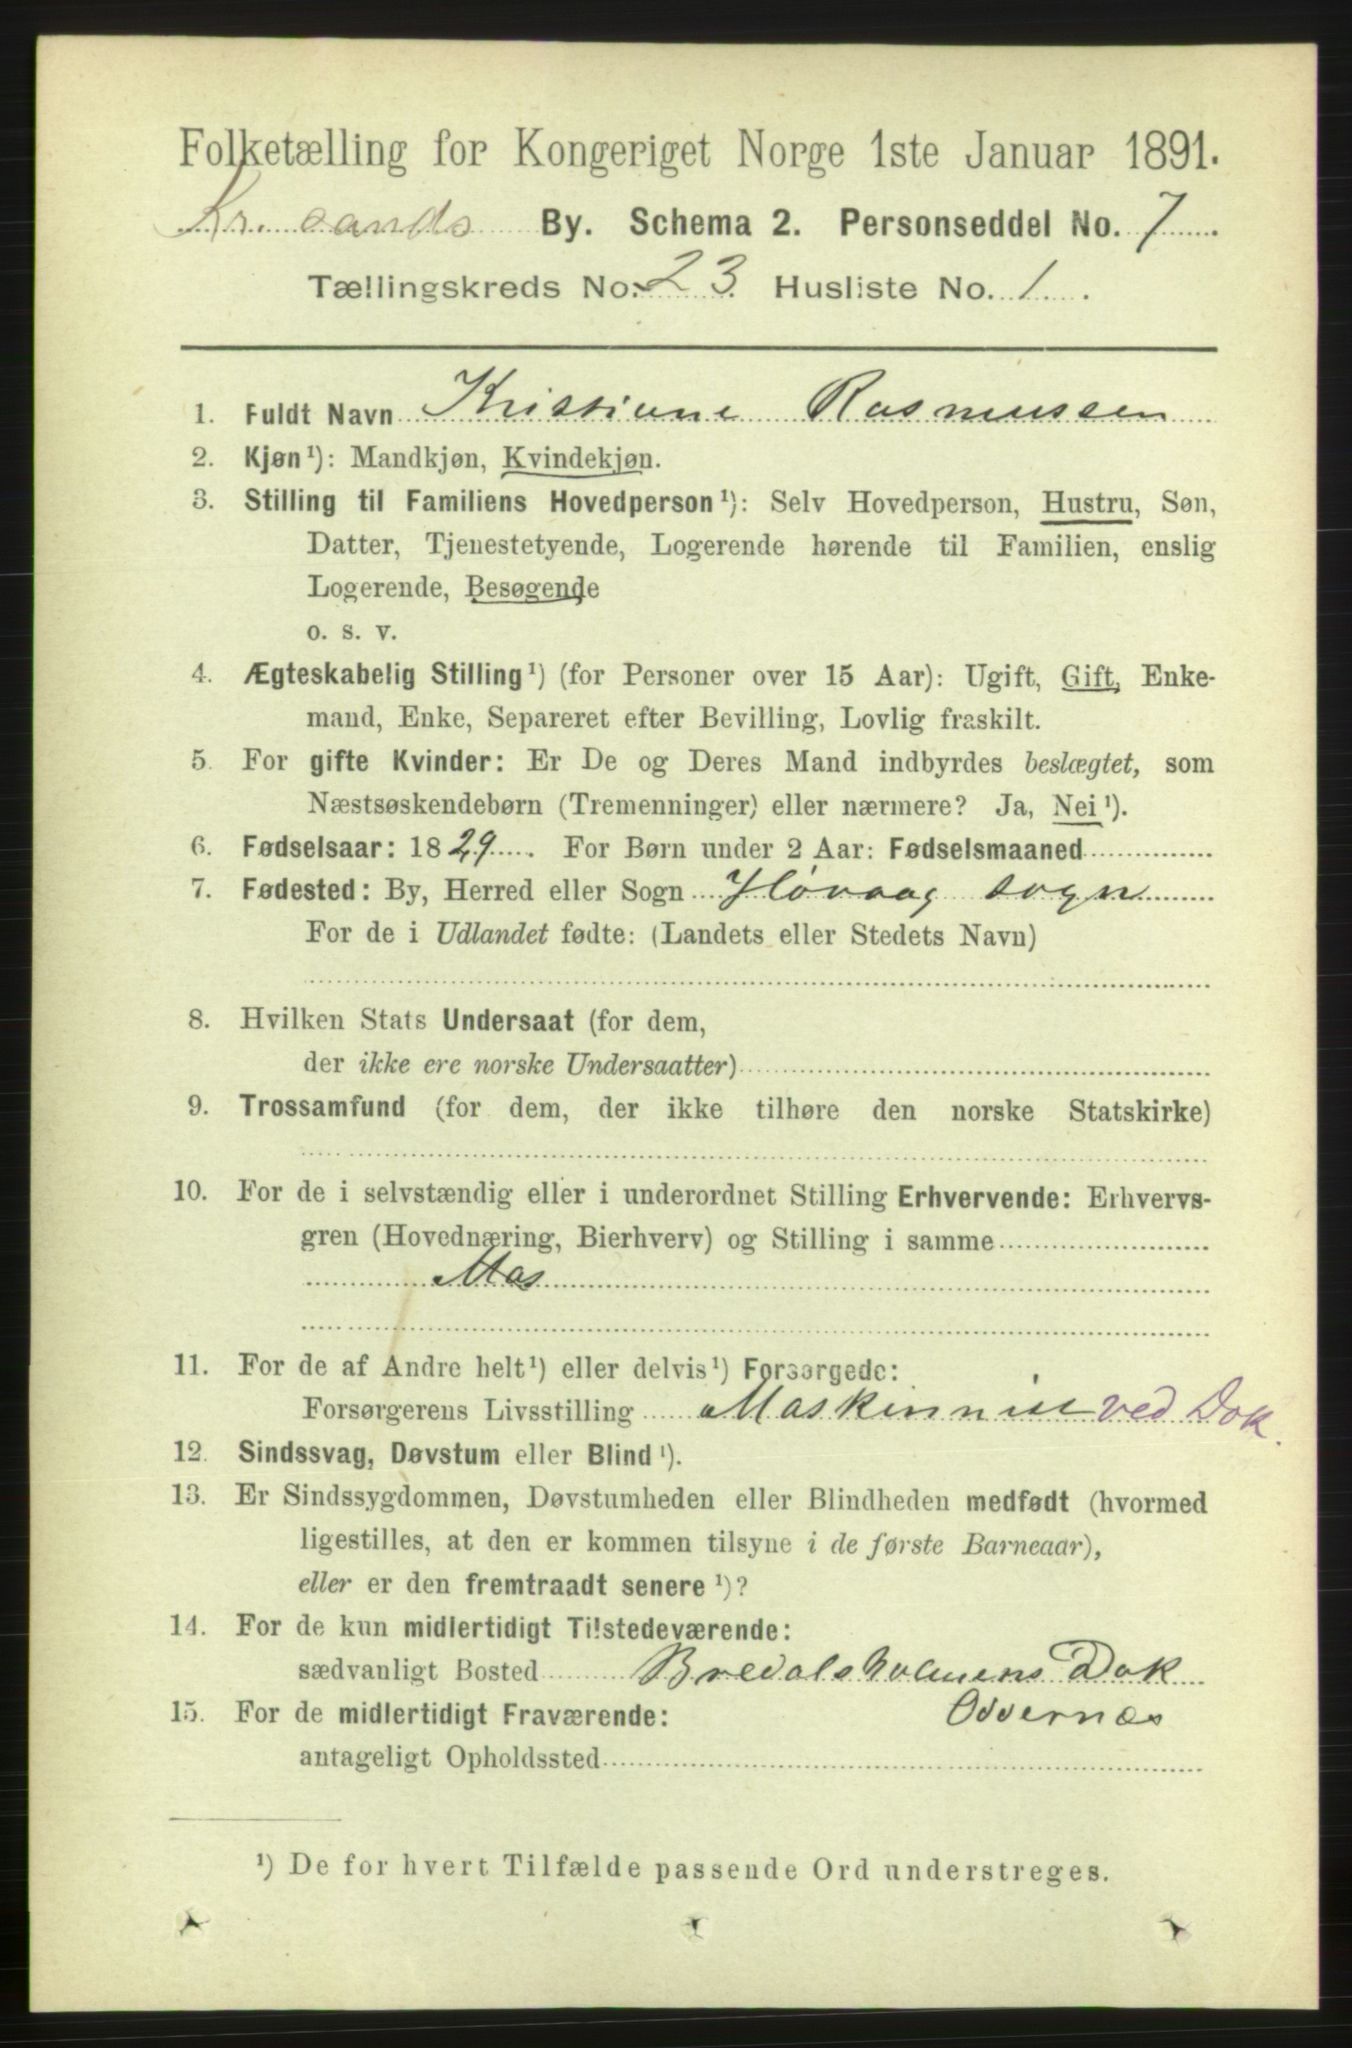 Folketælling for Kongeriget Norge 1ste Januar 1891.
Kr.sands By. Schema 2. Personseddel No. 7
Tællingskreds No. 23 Husliste No. 1
1. Fuldt Navn Kristiane Rasmussen
2. Kjøn¹): Mandkjøn, Kvindekjøn.
3. Stilling til Familiens Hovedperson¹): Selv Hovedperson, Hustru, Søn,
Datter, Tjenestetyende, Logerende hørende til Familien, enslig
Logerende, Besøgende
o. s. v.
4. Ægteskabelig Stilling¹) (for Personer over 15 Aar): Ugift, Gift, Enke-
mand, Enke, Separeret efter Bevilling, Lovlig fraskilt.
5. For gifte Kvinder: Er De og Deres Mand indbyrdes beslægtet, som
Næstsøskendebørn (Tremenninger) eller nærmere? Ja, Nei¹).
6. Fødselsaar: 1829. For Børn under 2 Aar: Fødselsmaaned
7. Fødested: By, Herred eller Sogn Høvaag Sogn
For de i Udlandet fødte: (Landets eller Stedets Navn)
8. Hvilken Stats Undersaat (for dem,
der ikke ere norske Undersaatter)
9. Trossamfund (for dem, der ikke tilhøre den norske Statskirke)
10. For de i selvstændig eller i underordnet Stilling Erhvervende: Erhvervs-
gren (Hovednæring, Bierhverv) og Stilling i samme
Mas
11. For de af Andre helt¹) eller delvis¹) Forsørgede:
Forsørgerens Livsstilling Maskinnist ved Dok.
12. Sindssvag, Døvstum eller Blind¹).
13. Er Sindssygdommen, Døvstumheden eller Blindheden medfødt (hvormed
ligestilles, at den er kommen tilsyne i de første Barneaar),
eller er den fremtraadt senere¹)?
14. For de kun midlertidigt Tilstedeværende:
sædvanligt Bosted Bredalsholmens Dok
15. For de midlertidigt Fraværende: Oddernæs
antageligt Opholdssted
¹) De for hvert Tilfælde passende Ord understreges.